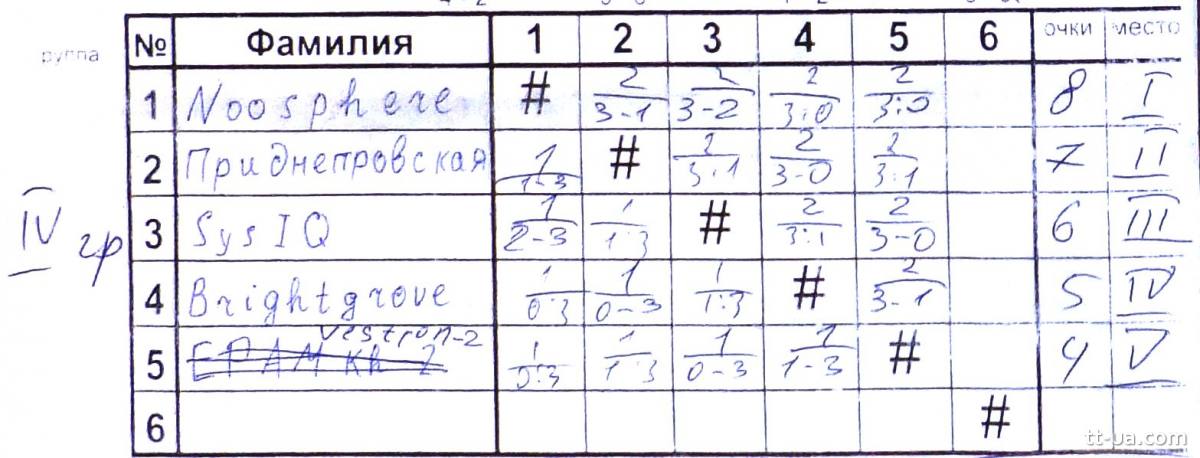 группа № Фамилия 1 2 3 4 5 6 очки место
1 Noosphere # 2 2 2 2 8 I
3-1 3-2 3:0 3:0
2 Приднепровская 1 # 2 2 2 7 II
1-3 3:1 3-0 3:1
IV гр
3 SysIQ 1 1 # 2 2 6 III
2-3 1:3 3:1 3-0
4 Brightgrove 1 1 1 # 2 5 IV
0:3 0-3 1:3 3-1
Vestron-2
5 EPAM Kh 2 1 1 1 1 # 4 V
0:3 1:3 0-3 1-3
6 #
tt-ua.com